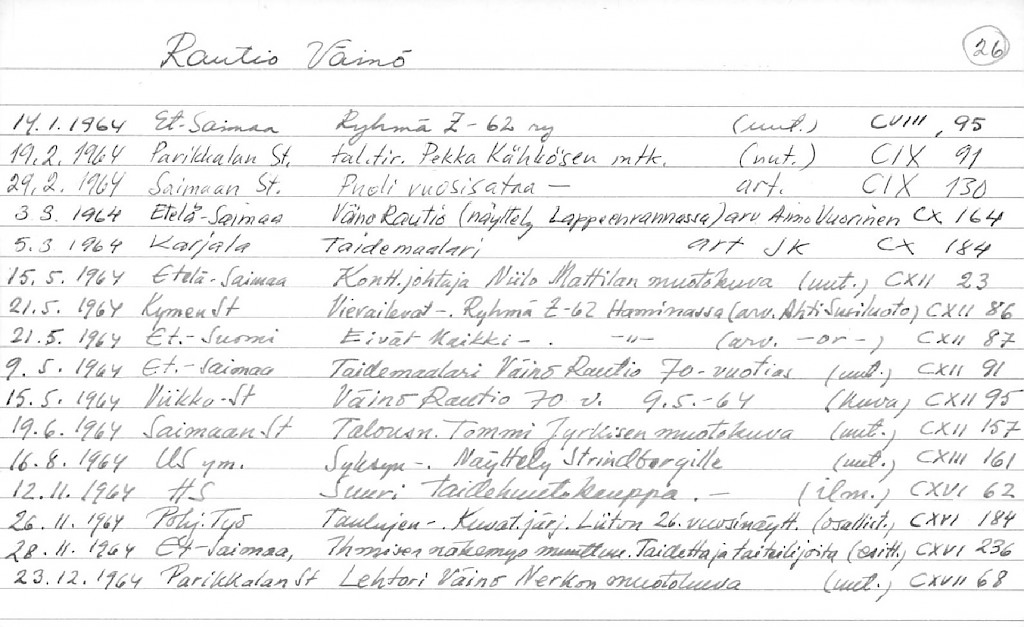 Rautio Väinö 26
14.1.1964 Et-Saimaa Ryhmä Z-62 ry (uut.) CVIII, 95
19.2.1964 Parikkalan St. tal.tir. Pekka Kähkösen mtk. (uut.) CIX 91
29.2.1964 Saimaan St. Puoli vuosisataa - art. CIX 130
3.3.1964 Etelä-Saimaa Väinö Rautio (näyttely Lappeenrannassa) arv Aimo Vuorinen CX 164
5.3 1964 Karjala Taidemaalari art JK CX 184
15.5.1964 Etelä-Saimaa Kontt.johtaja Niilo Mattilan muotokuva (uut.) CXII 23
21.5.1964 Kymen St Vierailevat-. Ryhmä Z-62 Haminassa (arv. Ahti Susiluoto) CXII 86
21.5.1964 Et.-Suomi Eivät kaikki-. -"- (arv. -or-) CXII 87
9.5.1964 Et.-Saimaa Taidemaalari Väinö Rautio 70-vuotias (uut.) CXII 91
15.5.1964 Viikko-St Väinö Rautio 70 v. 9.5.-64 (kuva) CXII 95
19.6.1964 Saimaan St Talousn. Tommi Jyrkisen muotokuva (uut.) CXII 157
16.8.1964 US ym. Syksyn-. Näyttely Strindbergille (uut.) CXIII 161
12.11.1964 HS Suuri taidehuutokauppa.- (ilm.) CXVI 62
26.11.1964 Pohj.Työ Taulujen-. Kuvat.järj. Liiton 26. vuosinäytt. (osallist.) CXVI 184
28.11.1964 Et-Saimaa, Ihmisen näkemys muuttuu. Taidetta ja taiteilijoita (esitt) CXVI 236
23.12.1964 Parikkalan St Lehtori Väinö Nerkon muotokuva (uut.) CXVII 68